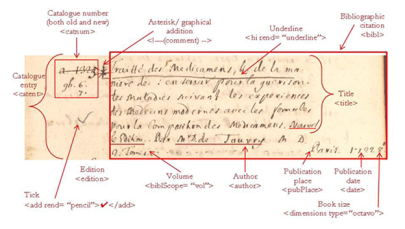 Catalogue number
(both old and new)
<catnum>
Asterisk/ graphical
addition
<!---(comment) -->
Underline
<hi rend= "underline">
Bibliographic
citation
<bibl>
Catalogue
entry
<catent>
gh. 6.
7.
Traitté des Medicamens, & de la ma
niere de s'en servir pour la guerison
des maladies suivant les experiences
des Medecins modernes, avec les formules
pour la composition des Medicamens.
Par Mr. de Tauvry M. D.
Paris.
2. Tom.
Title
<title>
Tick
<add rend= "pencil">✓</add>
Edition
<edition>
Volume
<biblScope= "vol">
Author
<author>
Publication
place
<pubPlace>
Publication
date
<date>
Book size
<dimensions type="octavo">